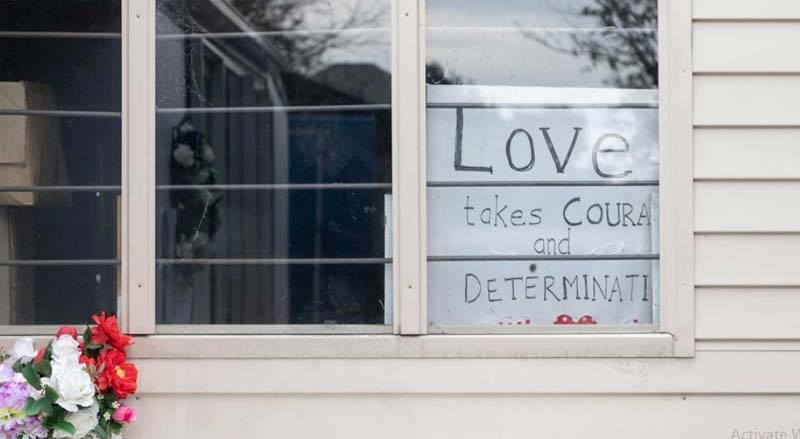 Love
takes COURA
and
DETERMINATI
Activate W